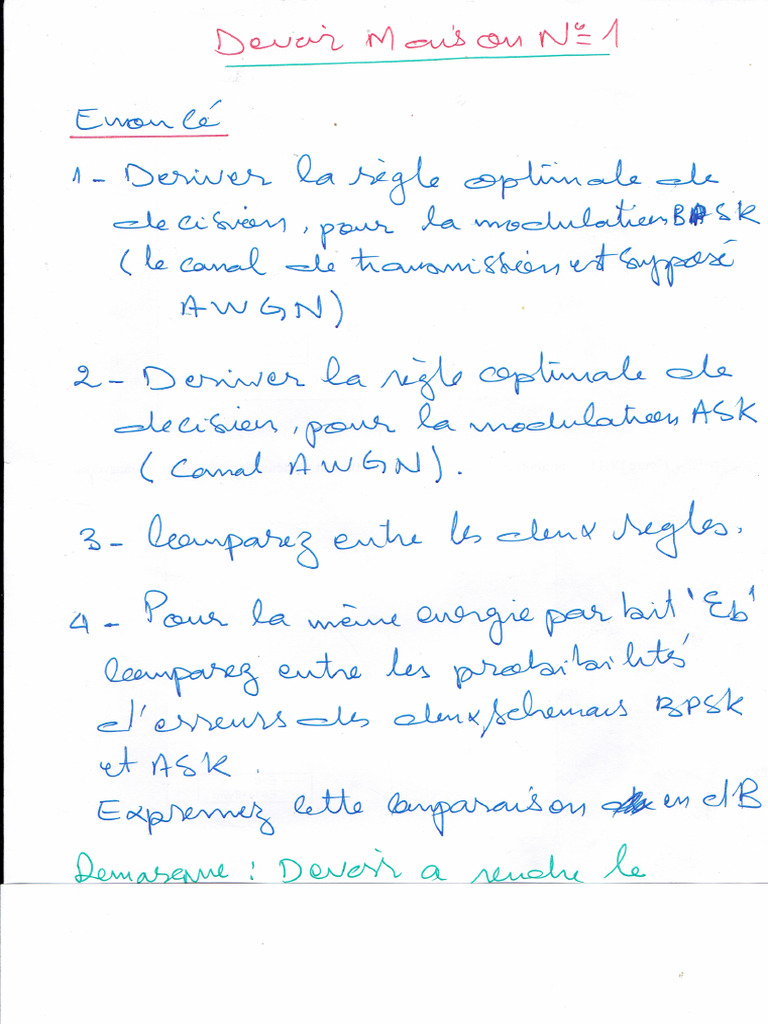 Devoir Maison N° 1
Enoncé
1 - Deriver la règle optimale de
decision, pour la modulation BPSK
(le canal de transmission est supposé
AWGN)
2 - Deriver la règle optimale de
decision, pour la modulation ASK
(Canal AWGN).
3 - Comparez entre les deux regles.
4 - Pour la même energie par bit 'Eb'
Comparez entre les probabilités
d'erreurs des deux schemas BPSK
et ASK.
Expremez cette comparaison en dB
Remarque : Devoir a rendre le